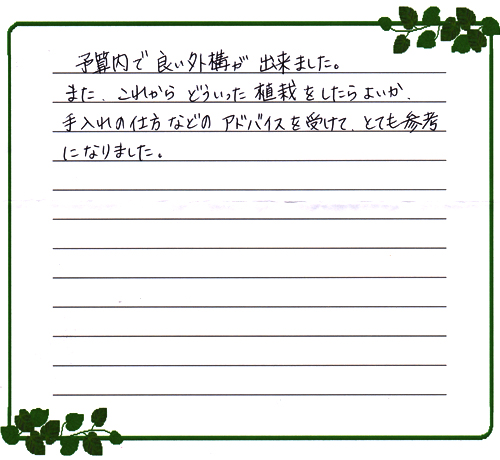 予算内で良い外構が出来ました。
また、これからどういった植栽をしたらよいか、
手入れの仕方などのアドバイスを受けて、とても参考
になりました。